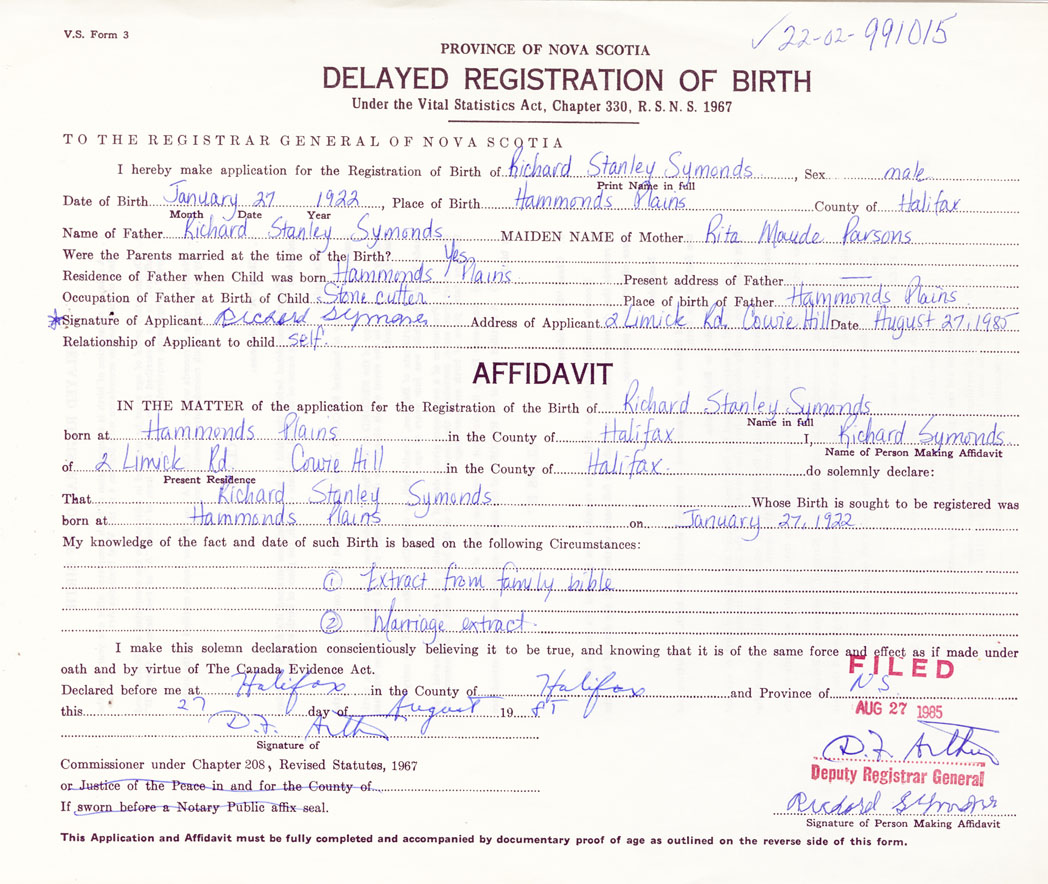 V.S. Form 3
✓22-02-991015
PROVINCE OF NOVA SCOTIA
DELAYED REGISTRATION OF BIRTH
Under the Vital Statistics Act, Chapter 330, R.S.N.S. 1967
TO THE REGISTRAR GENERAL OF NOVA SCOTIA
I hereby make application for the Registration of Birth of Richard Stanley Symonds, Sex male
Print Name in full
Date of Birth January 27 1922, Place of Birth Hammonds Plains County of Halifax
Month Date Year
Name of Father Richard Stanley Symonds MAIDEN NAME of Mother Rita Maude Parsons
Were the Parents married at the time of the Birth? Yes
Residence of Father when Child was born Hammonds Plains Present address of Father —
Occupation of Father at Birth of Child Stone cutter Place of birth of Father Hammonds Plains
*Signature of Applicant Richard Symonds Address of Applicant 2 Limick Rd. Cowie Hill Date August 27, 1985
Relationship of Applicant to child self.
AFFIDAVIT
IN THE MATTER of the application for the Registration of the Birth of Richard Stanley Symonds
Name in full
born at Hammonds Plains in the County of Halifax I, Richard Symonds
Name of Person Making Affidavit
of 2 Limick Rd Cowie Hill in the County of Halifax. do solemnly declare:
Present Residence
That Richard Stanley Symonds Whose Birth is sought to be registered was
born at Hammonds Plains on January 27, 1922
My knowledge of the fact and date of such Birth is based on the following Circumstances:
① Extract from family bible
② Marriage extract.
I make this solemn declaration conscientiously believing it to be true, and knowing that it is of the same force and effect as if made under
oath and by virtue of The Canada Evidence Act.
FILED
Declared before me at Halifax in the County of Halifax and Province of N.S.
this 27 day of August 19 85
AUG 27 1985
D.F. Arthur
Signature of
D.F. Arthur
Commissioner under Chapter 208, Revised Statutes, 1967
Deputy Registrar General
or Justice of the Peace in and for the County of
Richard Symonds
If sworn before a Notary Public affix seal.
Signature of Person Making Affidavit
This Application and Affidavit must be fully completed and accompanied by documentary proof of age as outlined on the reverse side of this form.